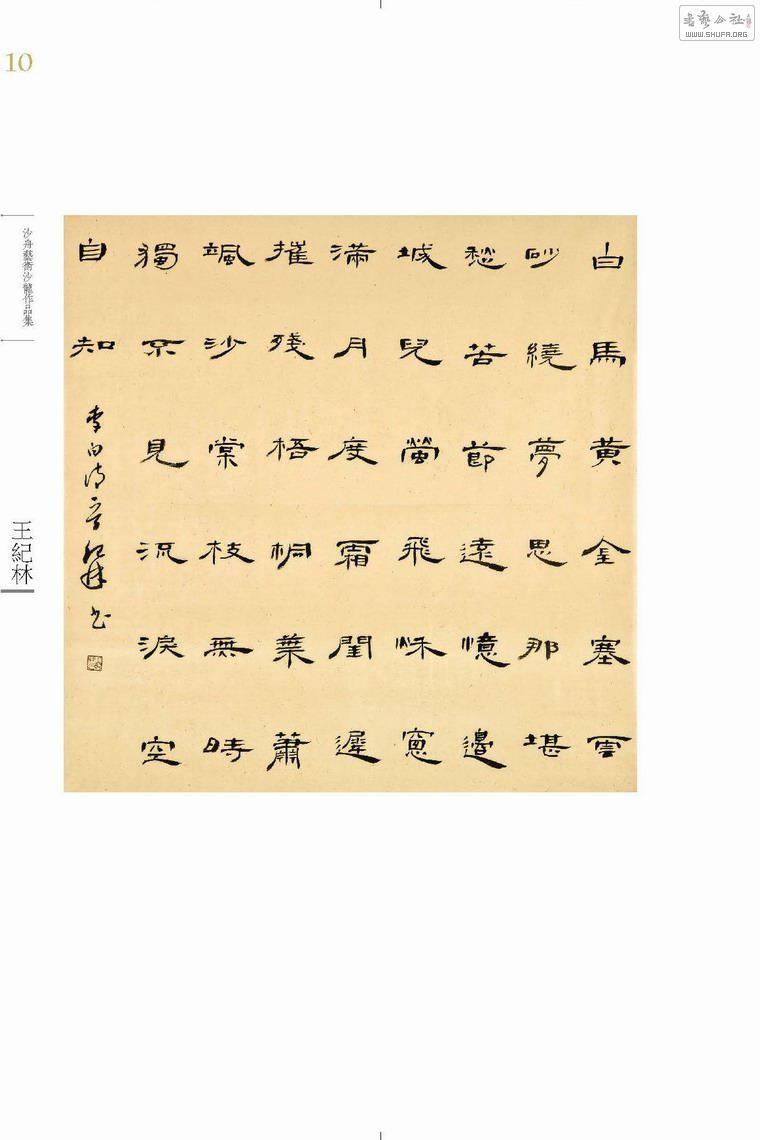 書藝公社
WWW.SHUFA.ORG
10
沙舟藝術沙龍作品集
王紀林
白馬黄金塞雲
砂繞夢思那堪
愁苦節遠憶邊
城兒螢飛秌窓
滿月度霜閨遲
摧殘梧桐葉蕭
颯沙棠枝無時
獨京見流淚空
自知
李白诗一首紀林书